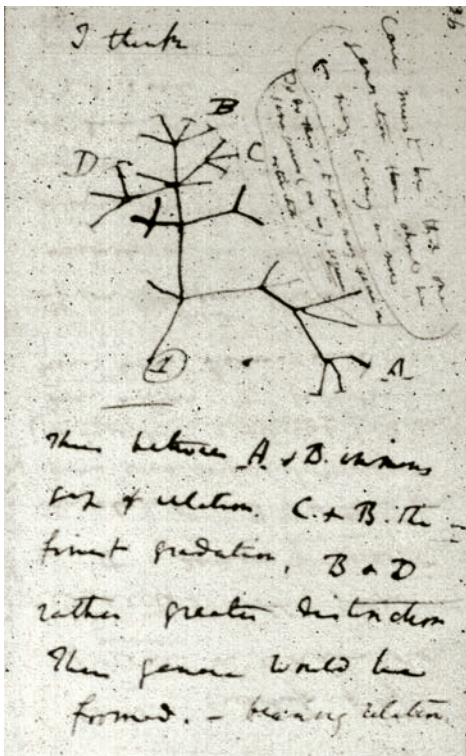 36
I think
Case must be that one
generation then should be
as many living as now
To do this & to have many species in
same genus (as is) requires
extinction
B
D
C
1
A
Thus between A & B. immense
gap of relation. C & B. the
finest gradation, B & D
rather greater distinction
Thus genera would be
formed. — bearing relation